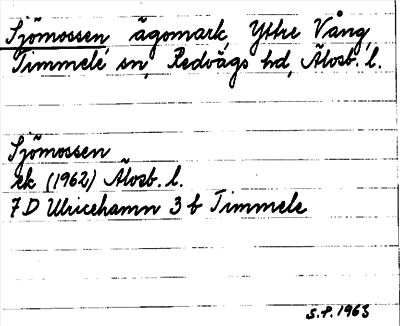 Sjömossen, ägomark, Yttre Vång,
Timmele sn, Redvägs hd, Älvsb. l.
Sjömossen
ek (1962) Älvsb. l.
7D Ulricehamn 3 b Timmele
S.P. 1963